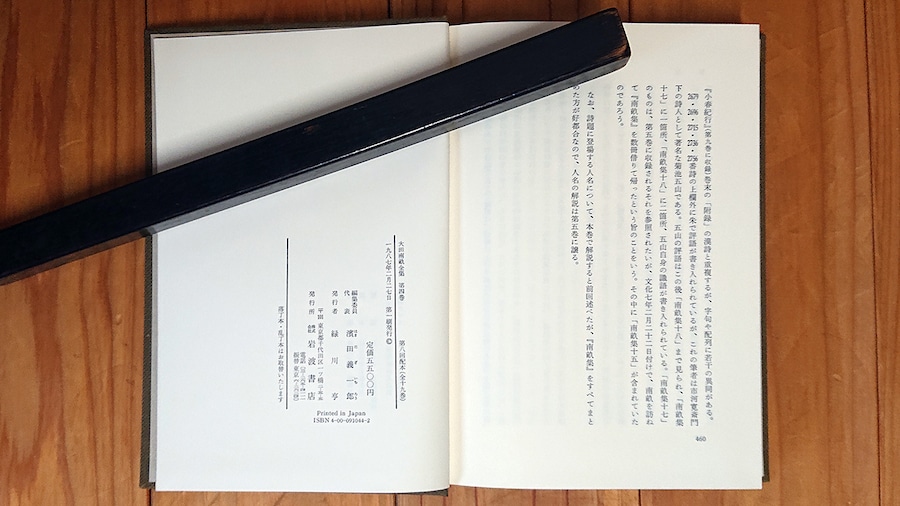 『小春紀行』(第九巻に収録)巻末の「附録」の漢詩と重複するが、字句や配列に若干の異同がある。
2679・2696・2715・2736・2756番詩の上欄外に朱で評語が書き入れられているが、これの筆者は市河寛斎門
下の詩人として著名な菊池五山である。五山の評語はこの後「南畝集十八」まで見られ、「南畝集
十七」に一箇所、「南畝集十八」に二箇所、五山自身の識語が書き入れられている。「南畝集十七」
のものは、第五巻に収録されるそれを参照されたいが、文化七年二月二十二日付けで、南畝を訪ね
て『南畝集』を数冊借りて帰ったという旨のことをいう。その中に「南畝集十五」が含まれていた
のであろう。
なお、詩題に登場する人名について、本巻で解説すると前回述べたが、『南畝集』をすべてまと
めた方が好都合なので、人名の解説は第五巻に譲る。
460
大田南畝全集 第四巻
第八回配本(全十九巻)
一九八七年二月二七日 第一刷発行©
定価五五〇〇円
編集委員代表 濱田義一郎
発行者 緑川亨
東京都千代田区一ツ橋
発行所 株式会社 岩波書店
電話
振替 東京
落丁本・乱丁本はお取替いたします
Printed in Japan
ISBN 4-00-091044-2